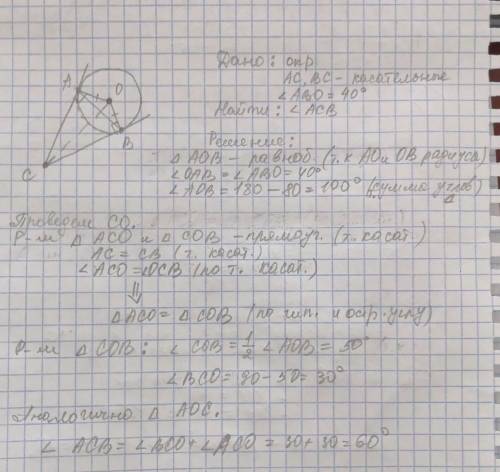 Дано: окр
AC, BC - касательные
∠ABO = 40°
Найти: ∠ACB
A
O
B
C
Решение:
△AOB - равноб. (т.к AO и OB радиусы)
∠OAB = ∠ABO = 40°
∠AOB = 180 - 80 = 100° (сумма углов △)
Проведем CO.
Р-м △ACO и △COB - прямоуг. (т. касат.)
AC = CB (т. касат.)
∠ACO = OCB (по т. касат.)
⇓
△ACO = △COB (по гип. и остр. углу)
Р-м △COB: ∠COB = 1/2 ∠AOB = 50°
∠BCO = 90 - 50 = 30°
Аналогично △AOC.
∠ACB = ∠BCO + ∠ACO = 30 + 30 = 60°